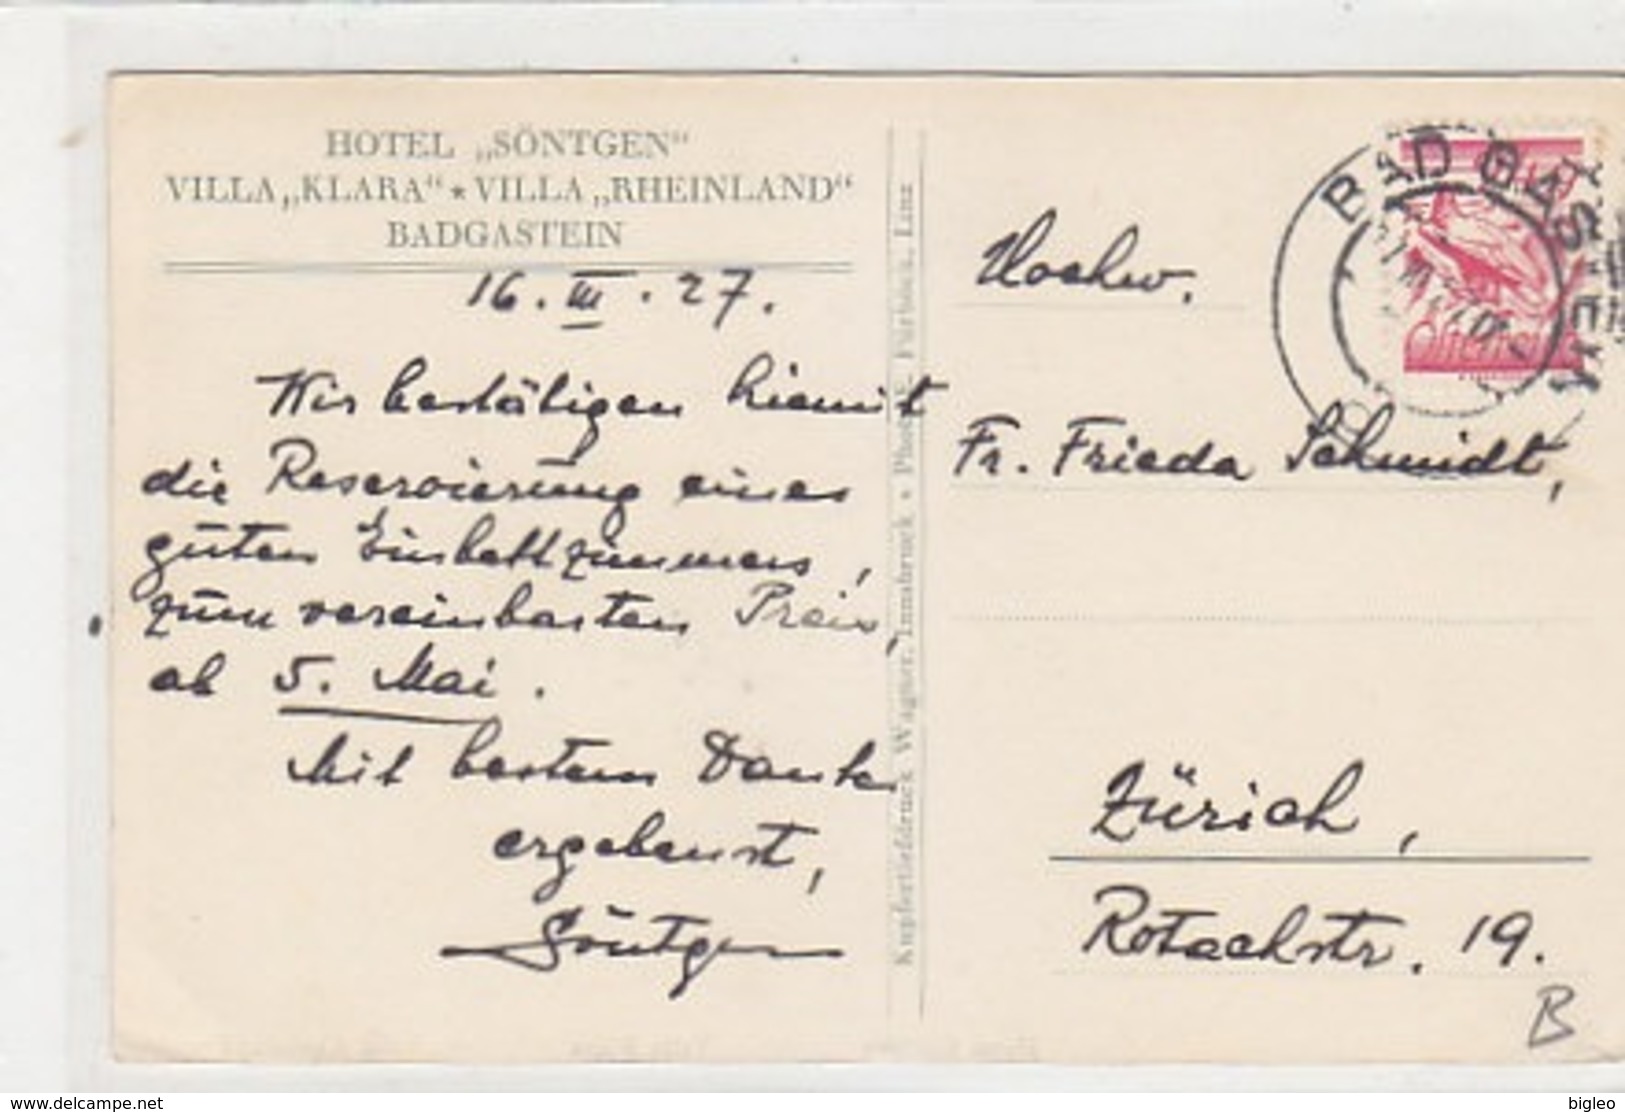 HOTEL „SÖNTGEN"
VILLA „KLARA" * VILLA „RHEINLAND"
BADGASTEIN
16. III. 27.
Wir bestätigen hiemit
die Reservierung eines
guten Einbettzimmers,
zum vereinbarten Preis,
ab 5. Mai.
Mit bestem Danke
ergebenst,
Söntgen
Kupfertiefdruck Wagner, Innsbruck * Phot. C. Fürböck, Linz
BAD GASTEIN
Österreich
Hochw.
Fr. Frieda Schmidt,
Zürich,
Rotachstr. 19.
B
www.delcampe.net
bigleo